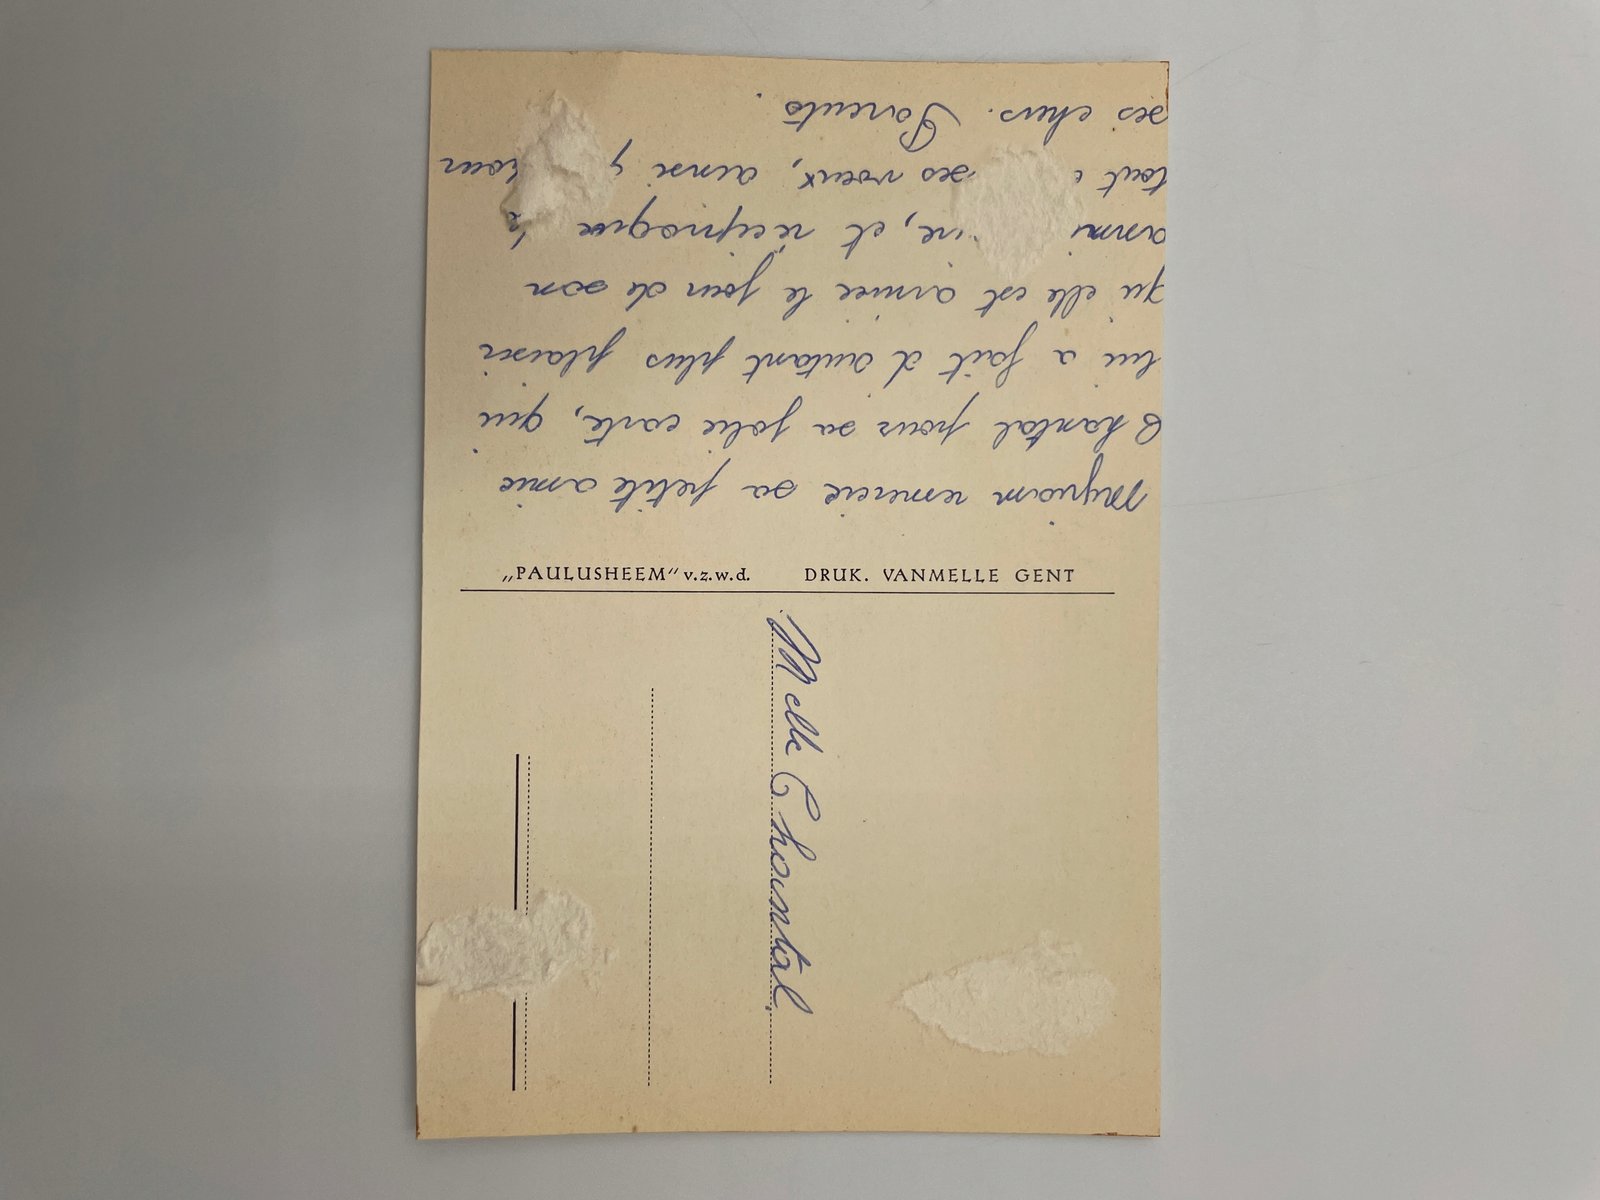 Myriam remercie sa petite amie
Chantal pour sa jolie carte, qui
lui a fait d'autant plus plaisir
qu'elle est arrivée le jour de son
et réciproque
tout ses voeux, ainsi
ses chers Parents.
„PAULUSHEEM“ v.z.w.d. DRUK. VANMELLE GENT
Melle Chantal.